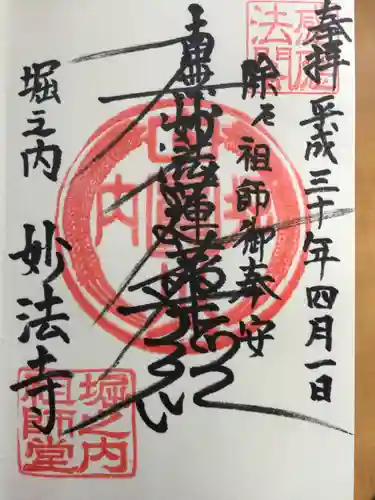 奉拝 平成三十年四月一日
除厄 祖師御奉安
南無妙法蓮華経
堀之内 妙法寺
堀之内
堀之内
祖師堂